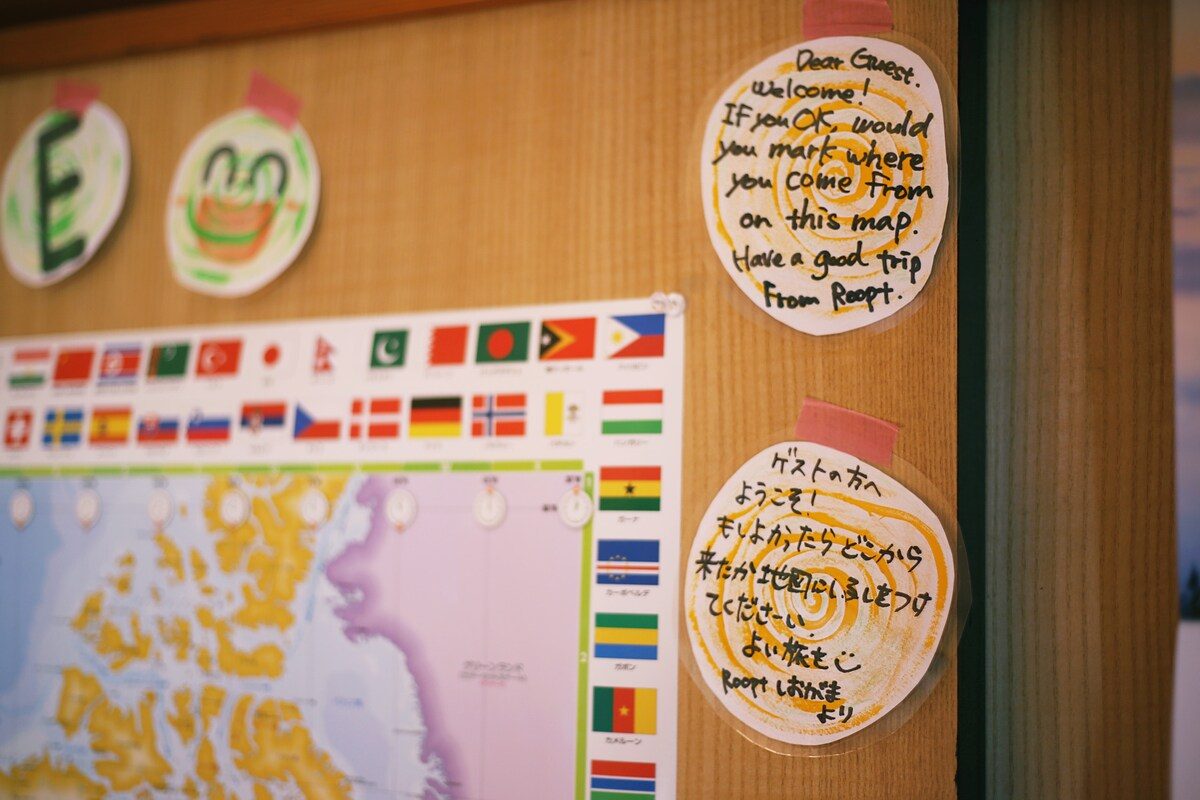 E
Dear Guest.
Welcome!
If you OK, would
you mark where
you come from
on this map.
Have a good trip
From Roopt.
ゲストの方へ
ようこそ!
もしよかったらどこから
来たか地図にしるしをつけ
てください.
よい旅を
Roopt しおがま
より
グリーンランド
ガーナ
カーボベルデ
ガボン
カメルーン